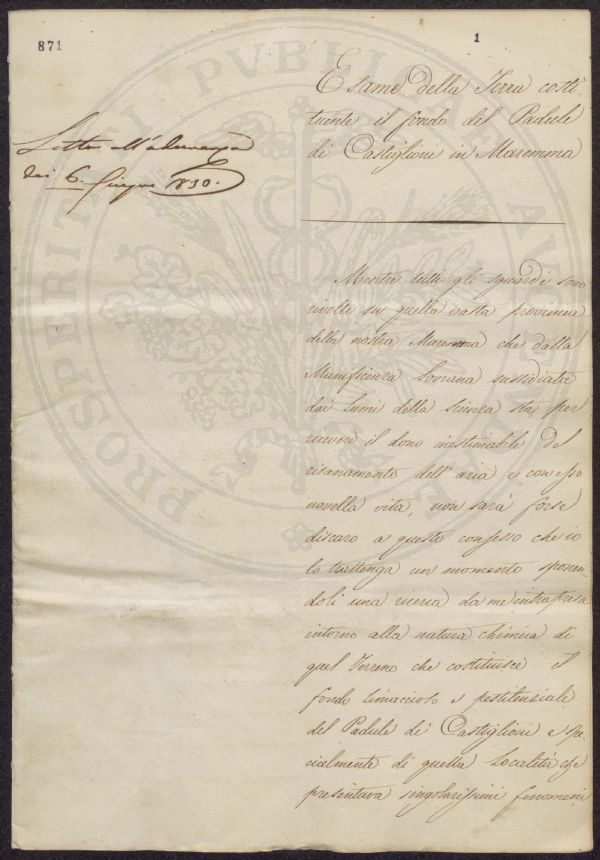 871
1
Esame della Terra costi-
tuente il fondo del Padule
di Castiglioni in Maremma
Letta all'adunanza
dei 6. Giugno 1830.
Mentre tutti gli sguardi sono
rivolti su quella vasta provincia
della nostra Maremma che dalla
Munificenza Sovrana sussidiata
dai lumi della scienza sta per
ricevere il dono inestimabile del
risanamento dell'aria e con esso
novella vita, non sarà forse
discaro a questo consesso che io
lo trattenga un momento sponen-
doli una ricerca da me intrapresa
intorno alla natura chimica di
quel Terreno che costituisce il
fondo limaccioso e pestilenziale
del Padule di Castiglioni e spe
cialmente di quella località che
presentava singolarissimi fenomeni
PROSPERITATI PVBLICAE AVGENDAE